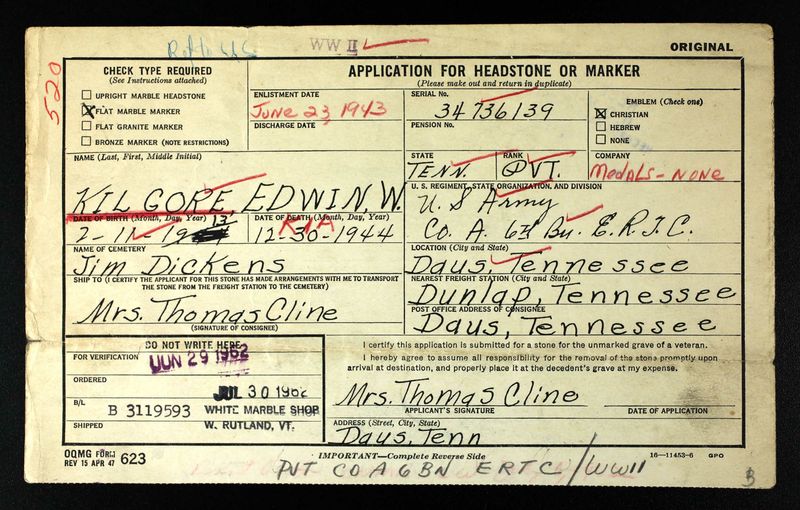 WW II
ORIGINAL
520
CHECK TYPE REQUIRED
(See Instructions attached)
UPRIGHT MARBLE HEADSTONE
FLAT MARBLE MARKER
FLAT GRANITE MARKER
BRONZE MARKER (NOTE RESTRICTIONS)
APPLICATION FOR HEADSTONE OR MARKER
(Please make out and return in duplicate)
ENLISTMENT DATE
June 23 1943
DISCHARGE DATE
SERIAL No.
34 736139
PENSION No.
EMBLEM (Check one)
CHRISTIAN
HEBREW
NONE
NAME (Last, First, Middle Initial)
KILGORE, EDWIN, W.
STATE
TENN.
RANK
PVT.
COMPANY
Medals - NONE
U. S. REGIMENT, STATE ORGANIZATION, AND DIVISION
U. S Army
Co. A. 6th Bn. E.R.T.C.
DATE OF BIRTH (Month, Day, Year)
13
2-11-19
DATE OF DEATH (Month, Day, Year)
KIA
12-30-1944
NAME OF CEMETERY
Jim Dickens
LOCATION (City and State)
Daus, Tennessee
SHIP TO (I CERTIFY THE APPLICANT FOR THIS STONE HAS MADE ARRANGEMENTS WITH ME TO TRANSPORT
THE STONE FROM THE FREIGHT STATION TO THE CEMETERY)
Mrs. Thomas Cline
(SIGNATURE OF CONSIGNEE)
NEAREST FREIGHT STATION (City and State)
Dunlap, Tennessee
POST OFFICE ADDRESS OF CONSIGNEE
Daus, Tennessee
DO NOT WRITE HERE
FOR VERIFICATION
JUN 29 1962
ORDERED
JUL 30 1962
B/L
B 3119593
WHITE MARBLE SHOP
W. RUTLAND, VT.
SHIPPED
I certify this application is submitted for a stone for the unmarked grave of a veteran.
I hereby agree to assume all responsibility for the removal of the stone promptly upon
arrival at destination, and properly place it at the decedent's grave at my expense.
Mrs. Thomas Cline
APPLICANT'S SIGNATURE
DATE OF APPLICATION
ADDRESS (Street, City, State)
Daus, Tenn
OQMG FORM
REV 15 APR 47
623
IMPORTANT—Complete Reverse Side
16—11453-6 GPO
PVT CO A 6 BN ERTC/WWII
B